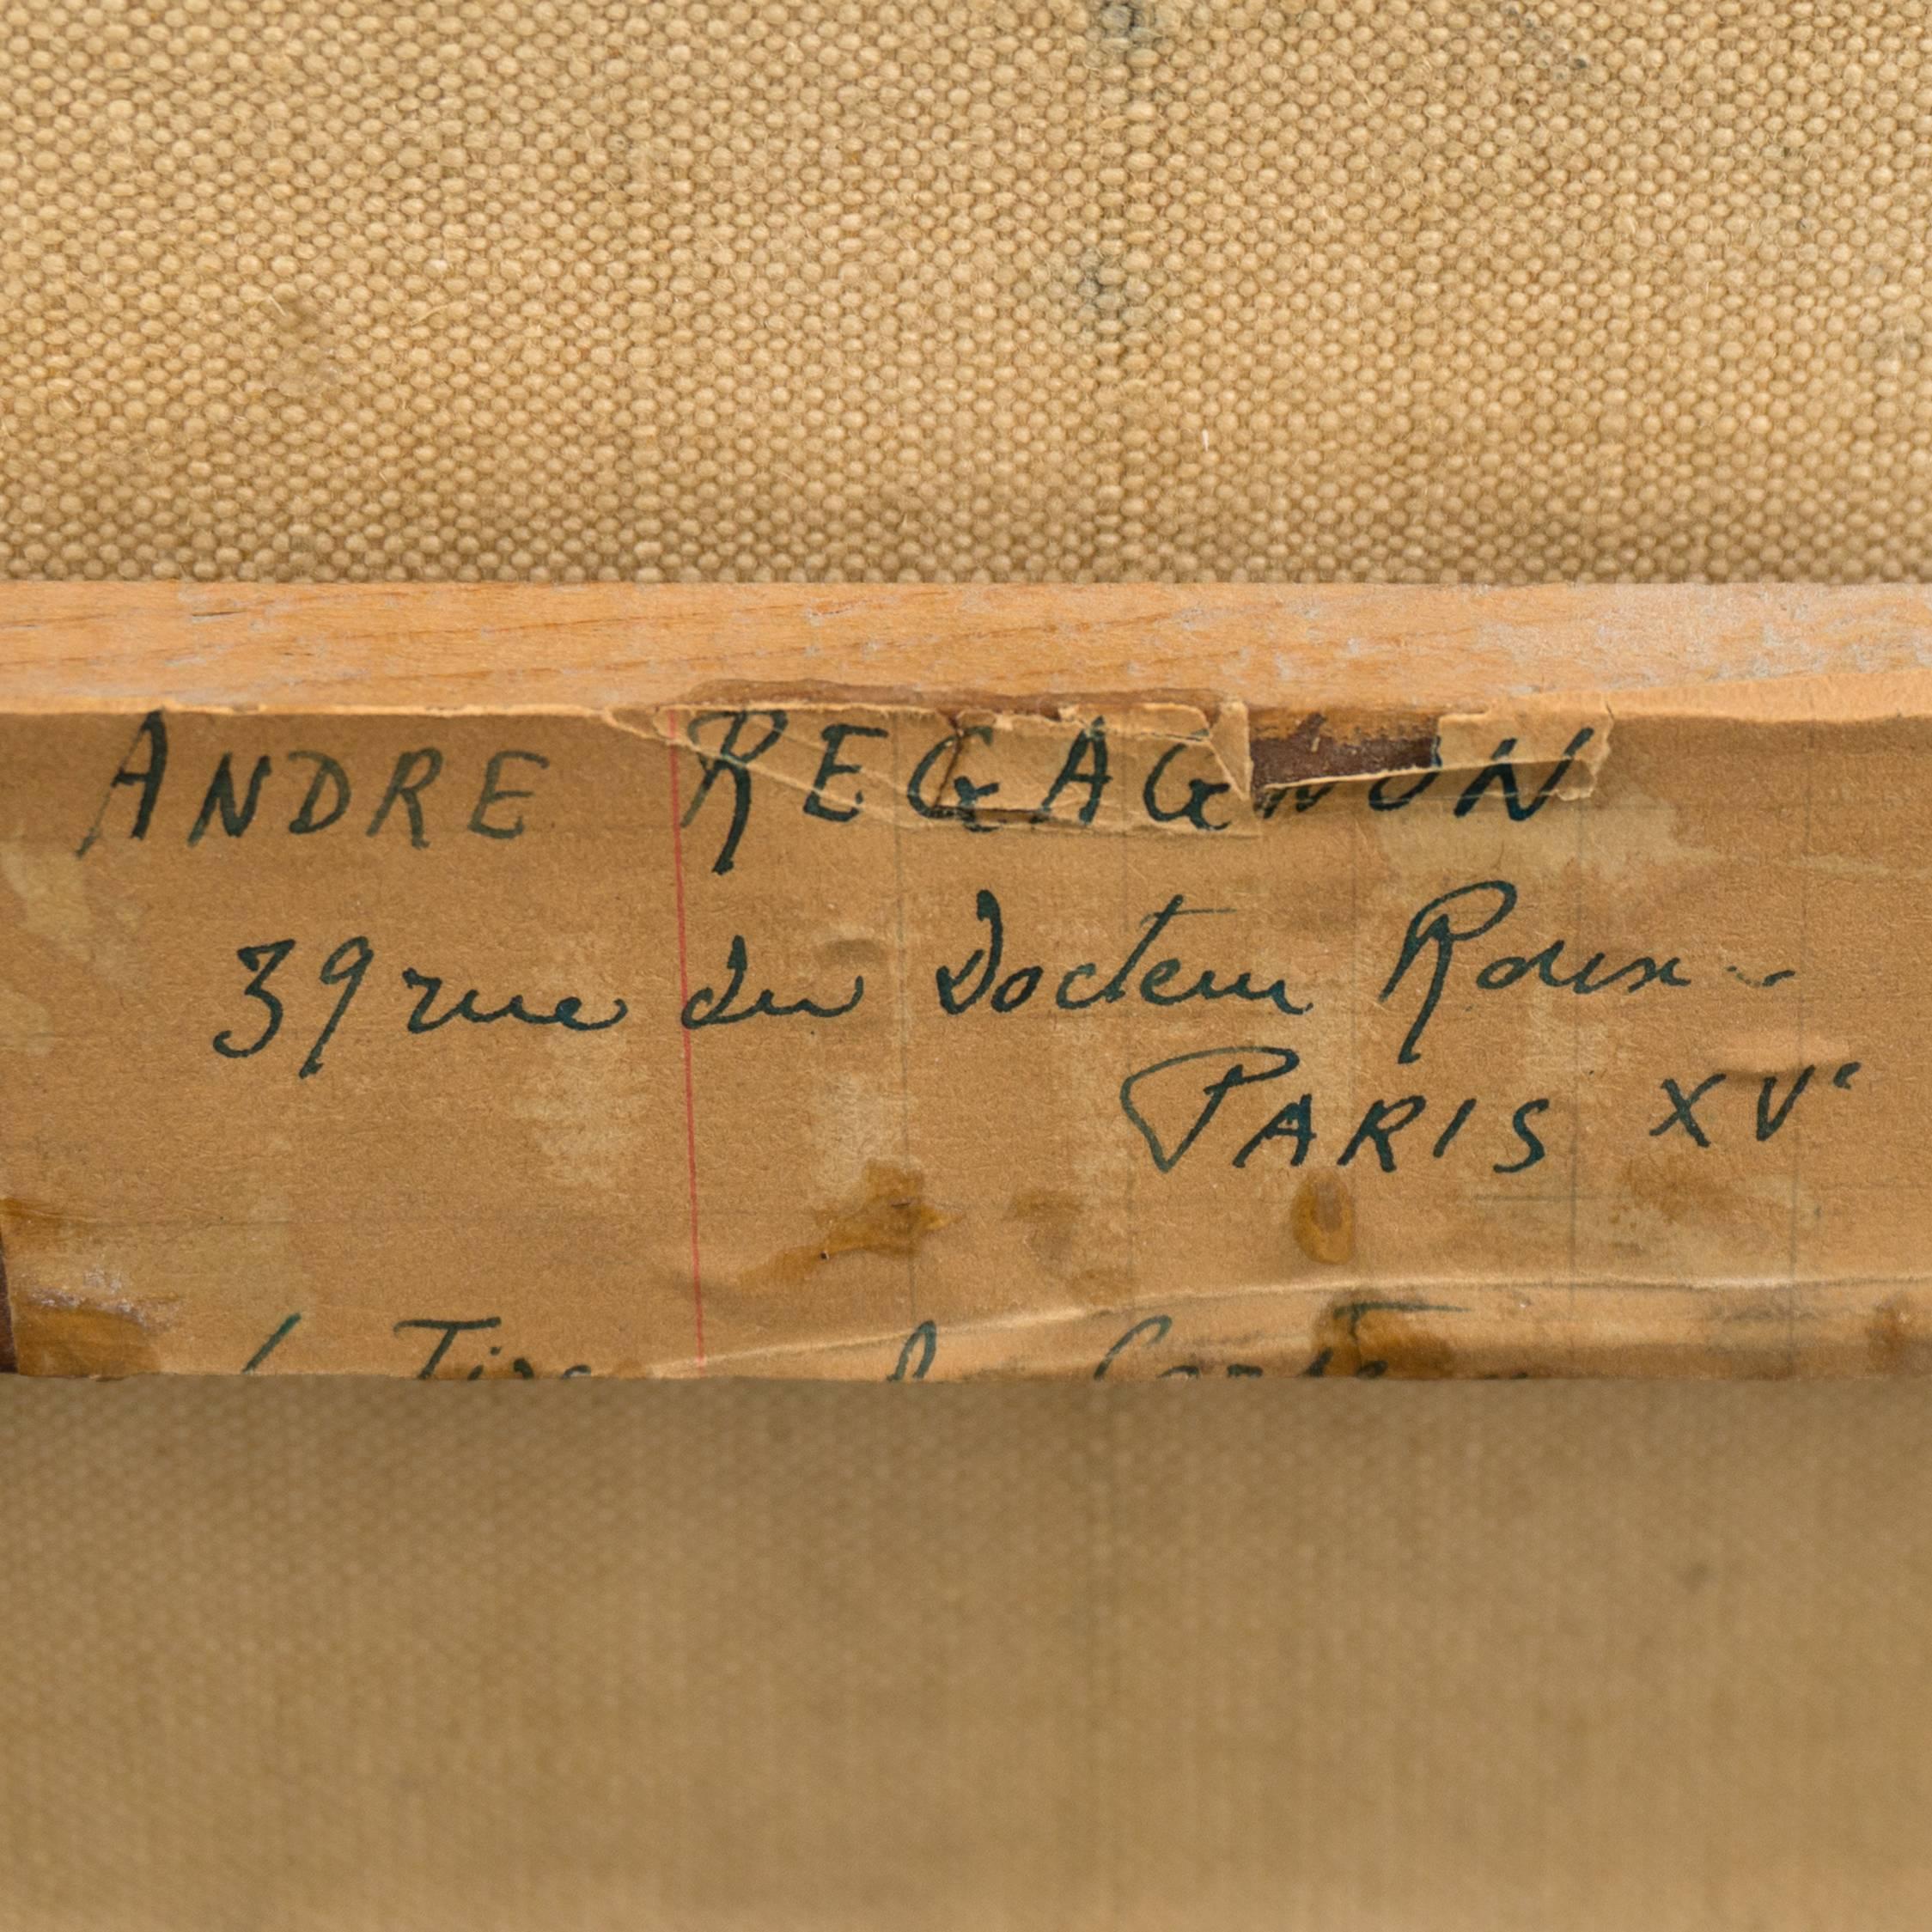 ANDRE REGAGNON
39 rue du Docteur Roux -
PARIS XVe